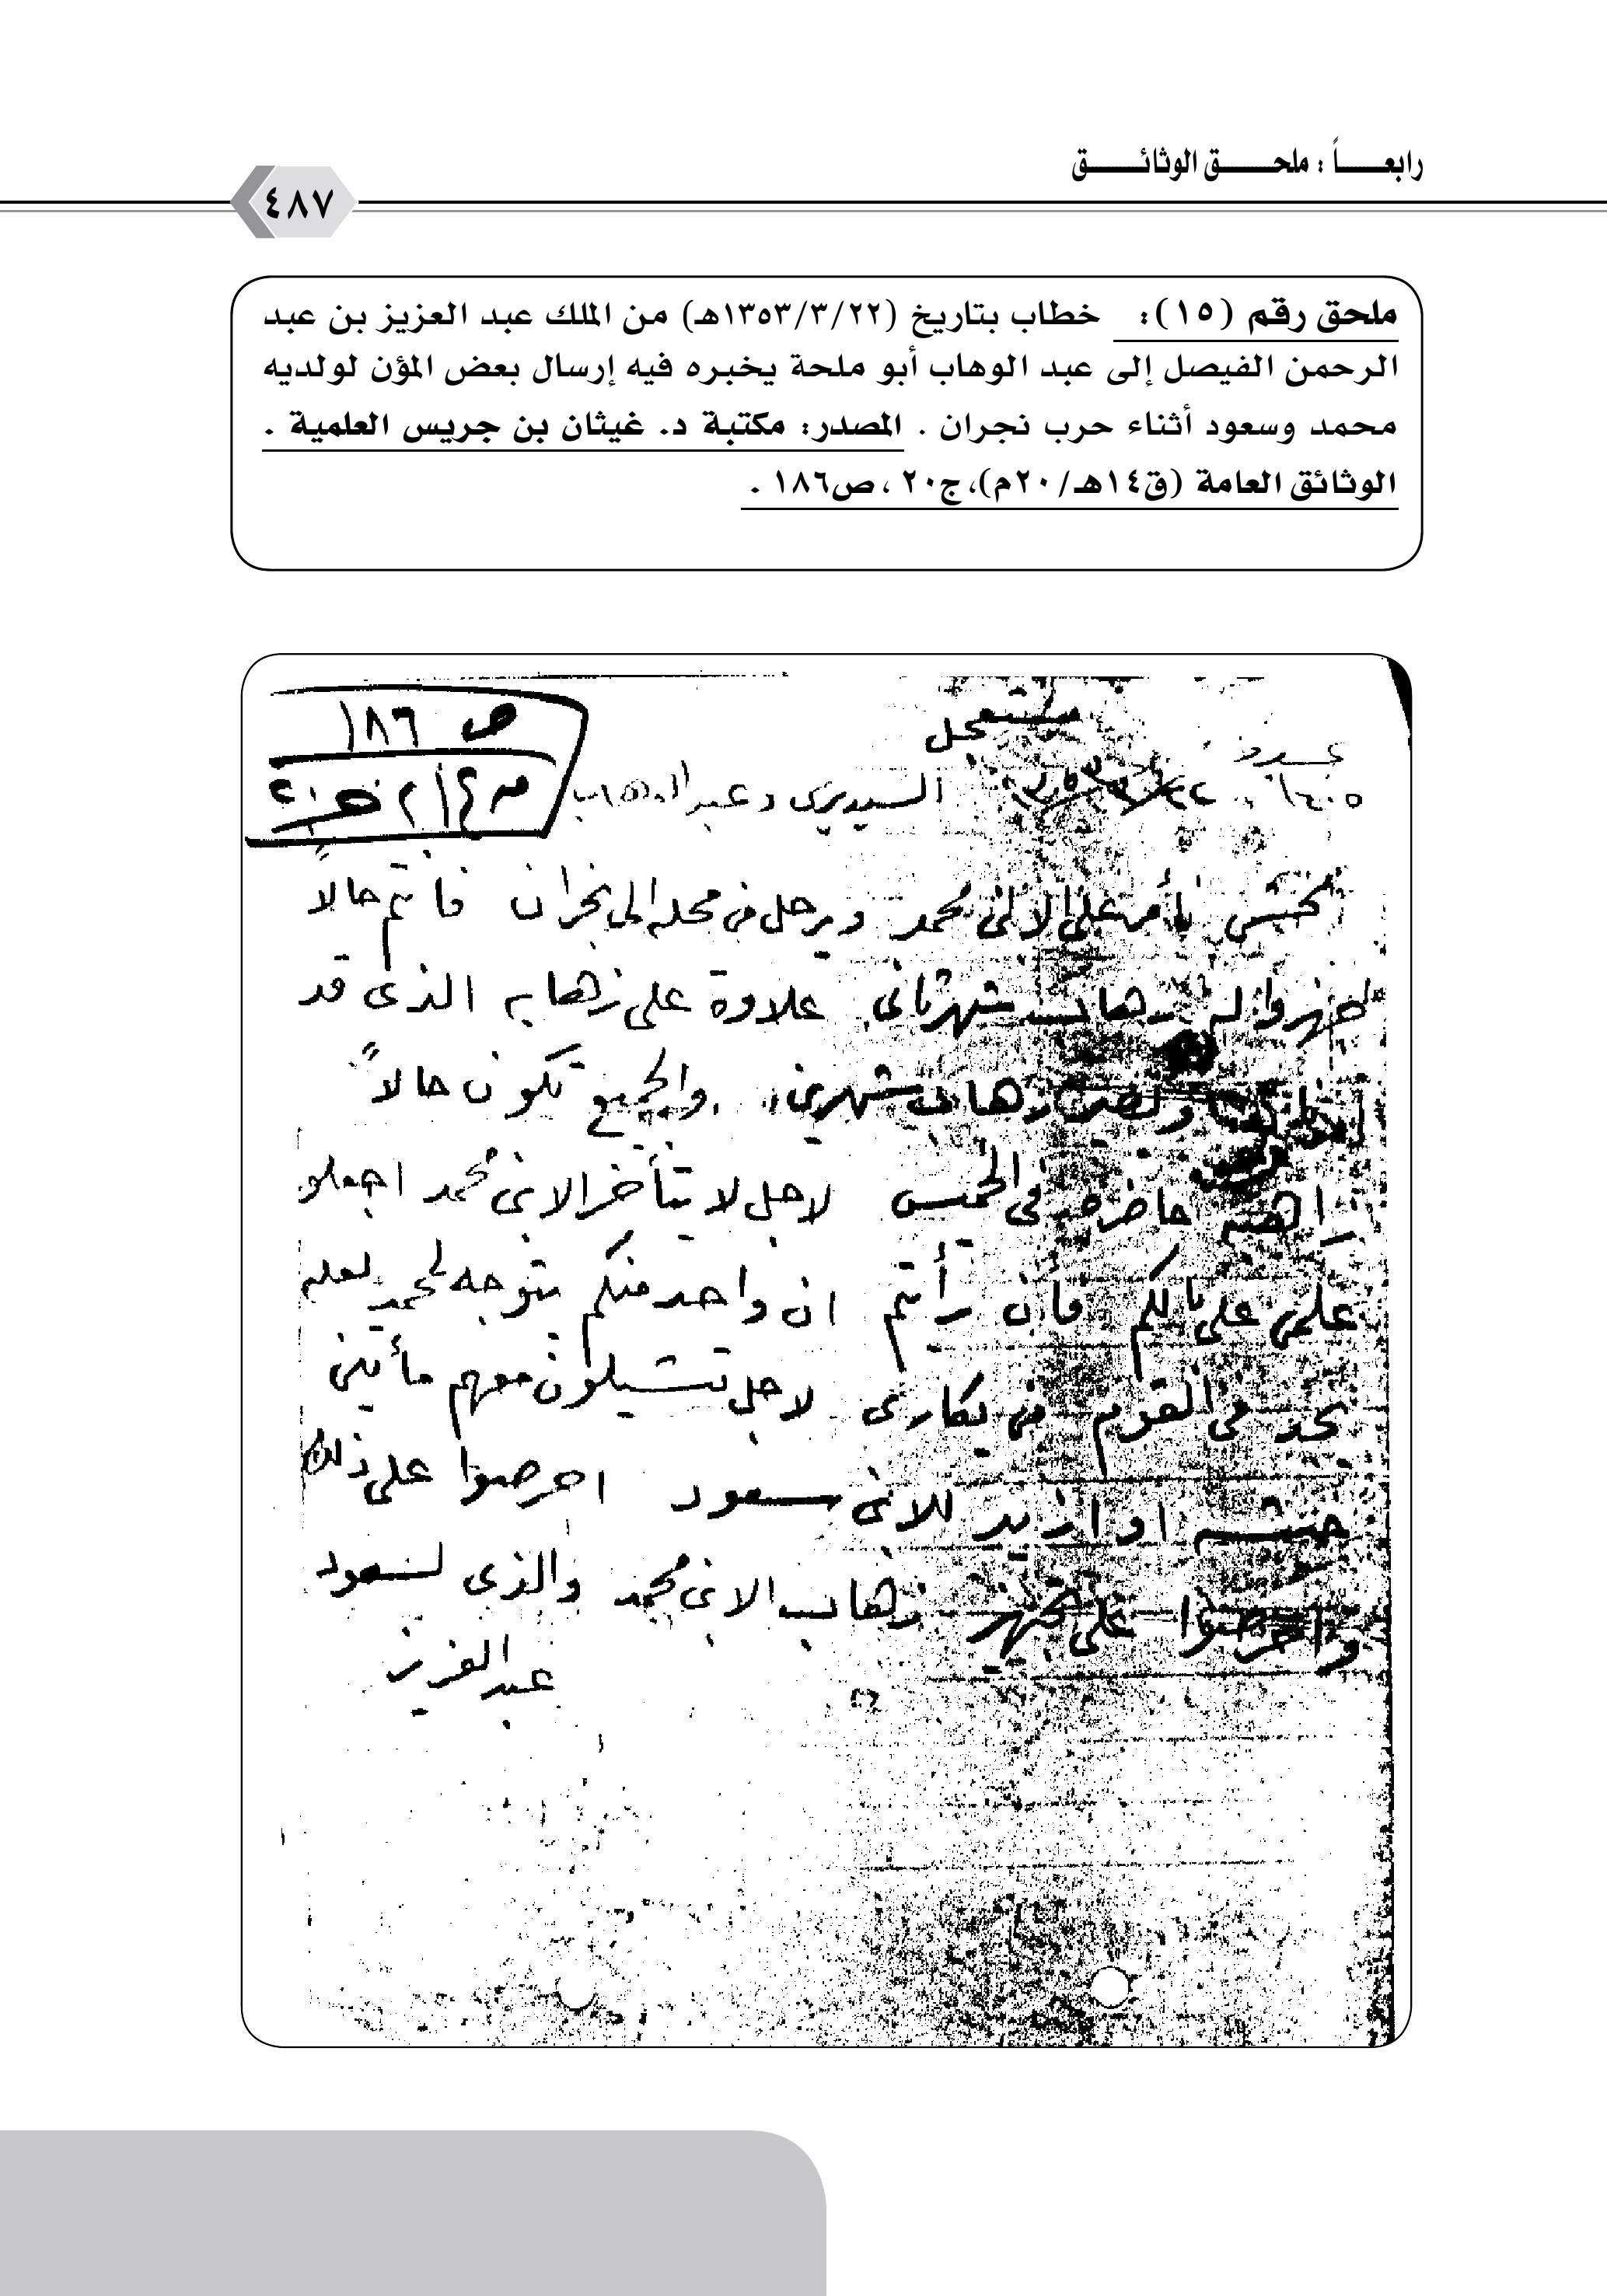 رابعـــاً : ملحـــق الوثائـــق
٤٨٧
ملحق رقم (١٥): خطاب بتاريخ (١٣٥٣/٣/٢٢هـ) من الملك عبد العزيز بن عبد
الرحمن الفيصل إلى عبد الوهاب أبو ملحة يخبره فيه إرسال بعض المؤن لولديه
محمد وسعود أثناء حرب نجران . المصدر: مكتبة د. غيثان بن جريس العلمية .
الوثائق العامة (ق١٤هـ/٢٠م)، ج٢٠ ، ص١٨٦ .
ص ١٨٦
مستعجل
السديري و عبد الوهاب
نأمر على الابن محمد ويرحل من محله الى نجران فانتم حالاً
جهزوا له زهاب شهر ثانى علاوة على زهابه الذى قد
زهاب شهرين والجميع تكون حالاً
حاضره فى الخميس لاجل لا يتأخر الابن محمد اجعلو
على بالكم فأن رأيتم ان واحد منكم يتوجه لمحمد لعله
يجد فى القوم من يكارى لاجل تشيلون معهم مأتين
او ازيد للابن سعود احرصوا على ذلك
واحرصوا على تجهيز زهاب الابن محمد والذى لسعود
عبد العزيز